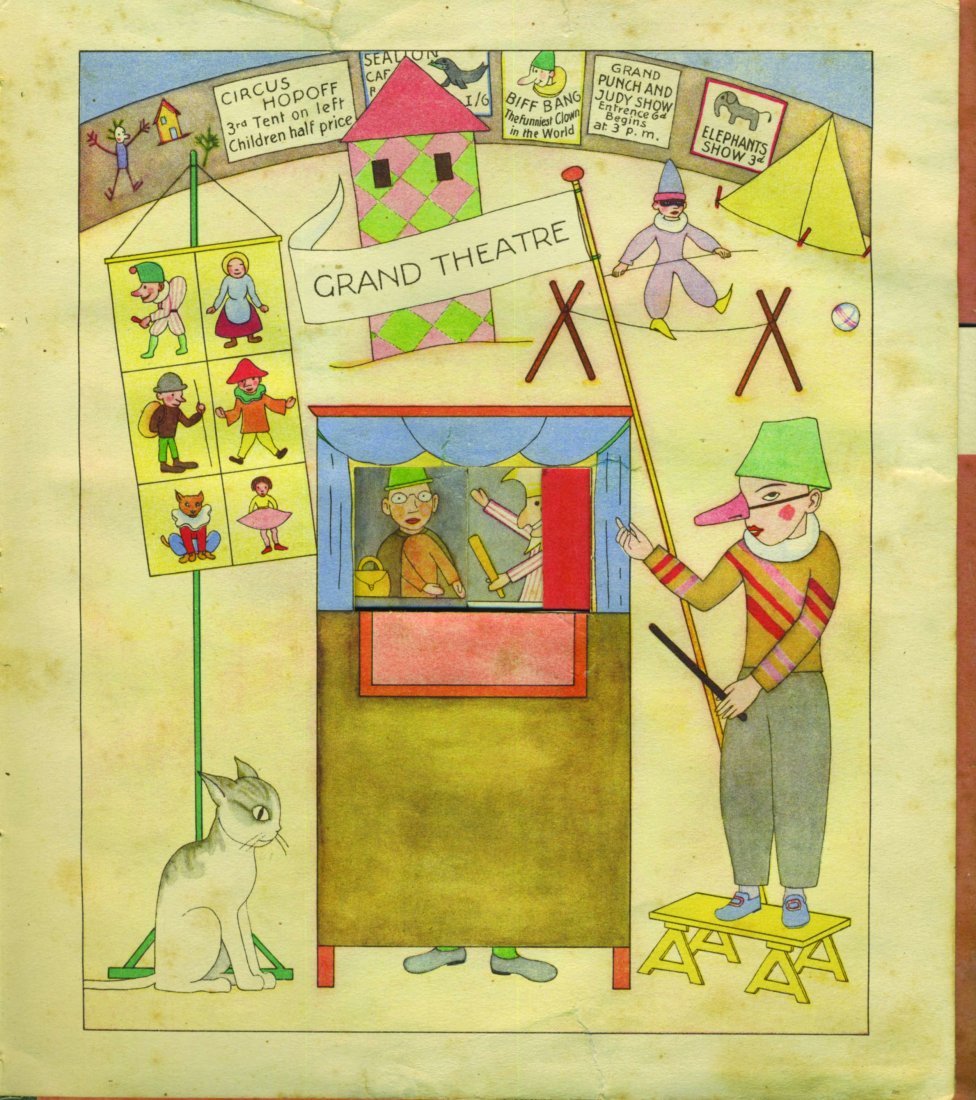 CIRCUS
HOPOFF
3rd Tent on left
Children half price
SEALION
1/6
BIFF BANG
The Funniest Clown
in the World
GRAND
PUNCH AND
JUDY SHOW
Entrence 6d
Begins
at 3 p.m.
ELEPHANTS
SHOW 3d
GRAND THEATRE